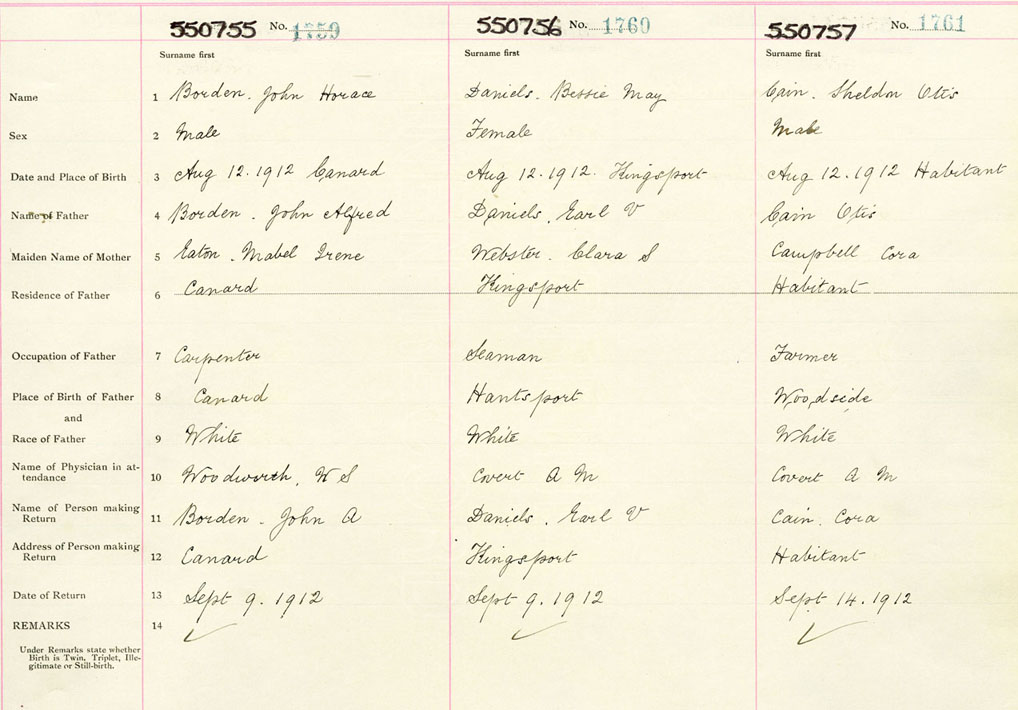 550755 No. 1759 550756 No. 1760 550757 No. 1761
Surname first Surname first Surname first
Name 1 Borden. John Horace Daniels. Bessie May Cain. Sheldon Otis
Sex 2 Male Female Male
Date and Place of Birth 3 Aug 12.1912 Canard Aug 12.1912. Kingsport Aug 12.1912 Habitant
Name of Father 4 Borden. John Alfred Daniels. Earl V Cain Otis
Maiden Name of Mother 5 Eaton. Mabel Irene Webster. Clara S Campbell Cora
Residence of Father 6 Canard Kingsport Habitant
Occupation of Father 7 Carpenter Seaman Farmer
Place of Birth of Father 8 Canard Hantsport Woodside
and
Race of Father 9 White White White
Name of Physician in at-
tendance 10 Woodworth, W S Covert A M Covert A M
Name of Person making
Return 11 Borden. John A Daniels. Earl V Cain. Cora
Address of Person making
Return 12 Canard Kingsport Habitant
Date of Return 13 Sept 9.1912 Sept 9.1912 Sept 14.1912
REMARKS 14
Under Remarks state whether
Birth is Twin, Triplet, Ille-
gitimate or Still-birth.